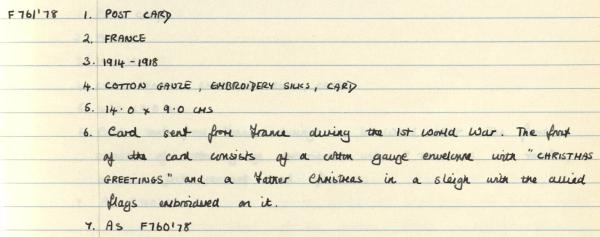 F761'78 1. POST CARD
2. FRANCE
3. 1914-1918
4. COTTON GAUZE, EMBROIDERY SILKS, CARD
5. 14.0 x 9.0 CMS
6. Card sent from France during the 1st World War. The front
of the card consists of a cotton gauze envelope with "CHRISTMAS
GREETINGS" and a Father Christmas in a sleigh with the allied
flags embroidered on it.
7. AS F760'78